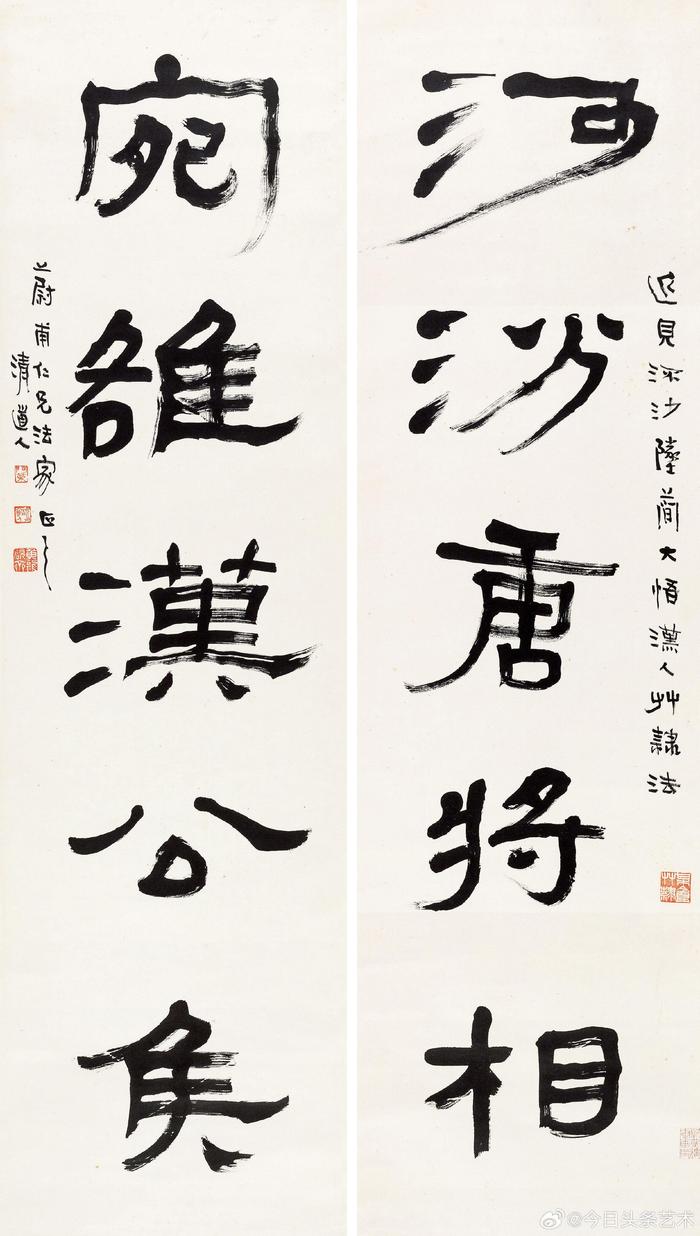 近見流沙墜簡大悟漢人艸隸法
河汾唐將相
宛雒漢公侯
蔚甫仁兄法家正之
清道人
@今日头条艺术